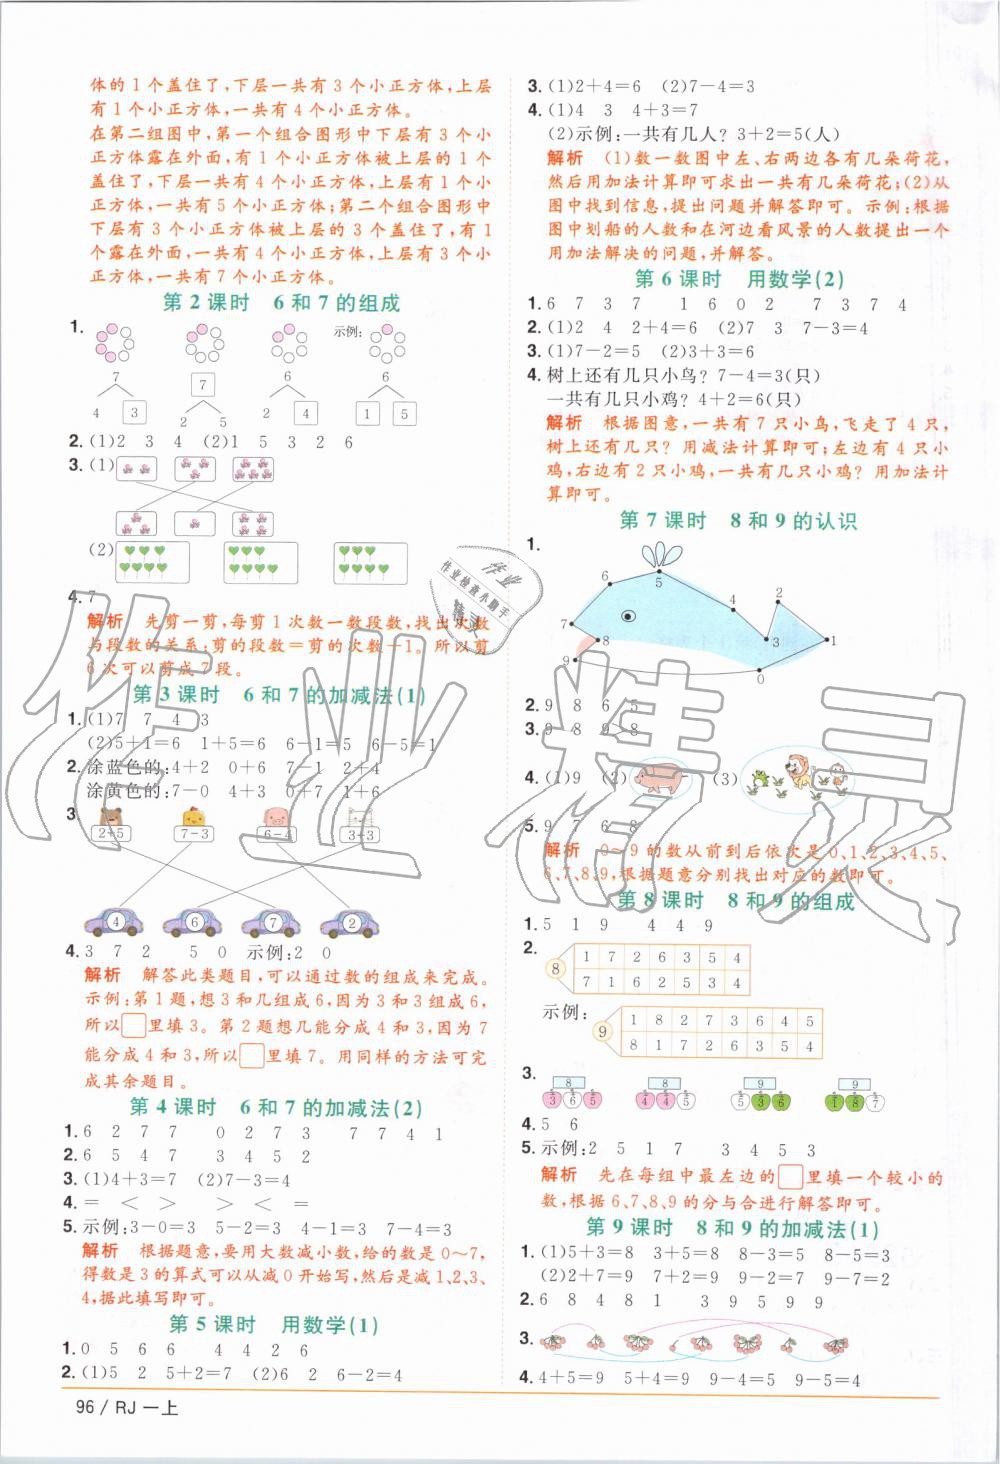 体的1个盖住了,下层一共有3个小正方体,上层
有1个小正方体,一共有4个小正方体。
在第二组图中,第一个组合图形中下层有3个小
正方体露在外面,有1个小正方体被上层的1个
盖住了,下层一共有4个小正方体,上层有1个小
正方体,一共有5个小正方体;第二个组合图形中
下层有3个小正方体被上层的3个盖住了,有1
个露在外面,一共有4个小正方体,上层有3个小
正方体,一共有7个小正方体。
第2课时 6和7的组成
1.
示例:
7 7 6 6
4 3 2 5 2 4 1 5
2.(1)2 3 4 (2)1 5 3 2 6
3.(1)
(2)
4.7
解析 先剪一剪,每剪1次数一数段数,找出次数
与段数的关系:剪的段数=剪的次数+1。所以剪
6次可以剪成7段。
第3课时 6和7的加减法(1)
1.(1)7 7 4 3
(2)5+1=6 1+5=6 6-1=5 6-5=1
2.涂蓝色的:4+2 0+6 7-1 2+4
涂黄色的:7-0 4+3 0+7 1+6
3.
2+5 7-3 6-4 3+3
4 6 7 2
4.3 7 2 5 0 示例:2 0
解析 解答此类题目,可以通过数的组成来完成。
示例:第1题,想3和几组成6,因为3和3组成6,
所以□里填3。第2题想几能分成4和3,因为7
能分成4和3,所以□里填7。用同样的方法可完
成其余题目。
第4课时 6和7的加减法(2)
1.6 2 7 7 0 2 7 3 7 7 4 1
2.6 5 4 7 3 4 5 2
3.(1)4+3=7 (2)7-3=4
4.= < > > < =
5.示例:3-0=3 5-2=3 4-1=3 7-4=3
解析 根据题意,要用大数减小数,给的数是0~7,
得数是3的算式可以从减0开始写,然后是减1、2、3、
4,据此填写即可。
第5课时 用数学(1)
1.0 5 6 6 4 4 2 6
2.(1)5 2 5+2=7 (2)6 2 6-2=4
96/RJ一上
3.(1)2+4=6 (2)7-4=3
4.(1)4 3 4+3=7
(2)示例:一共有几人?3+2=5(人)
解析 (1)数一数图中左、右两边各有几朵荷花,
然后用加法计算即可求出一共有几朵荷花;(2)从
图中找到信息,提出问题并解答即可。示例:根据
图中划船的人数和在河边看风景的人数提出一个
用加法解决的问题,并解答。
第6课时 用数学(2)
1.6 7 3 7 1 6 0 2 7 3 7 4
2.(1)2 4 2+4=6 (2)7 3 7-3=4
3.(1)7-2=5 (2)3+3=6
4.树上还有几只小鸟?7-4=3(只)
一共有几只小鸡?4+2=6(只)
解析 根据图意,一共有7只小鸟,飞走了4只,
树上还有几只?用减法计算即可;左边有4只小
鸡,右边有2只小鸡,一共有几只小鸡?用加法计
算即可。
第7课时 8和9的认识
1.
6 5 4 2
7 8 3 1
9 0
2.9 8 6 5
3.9 8 9>8
4.(1)9 (2) (3)
5.9 7 6 8
解析 0~9的数从前到后依次是0、1、2、3、4、5、
6、7、8、9,根据题意分别找出对应的数即可。
第8课时 8和9的组成
1.5 1 9 4 4 9
2.
8
1 7 2 6 3 5 4
7 1 6 2 5 3 4
示例:
9
1 8 2 7 3 6 4 5
8 1 7 2 6 3 5 4
3.
8 8 9 9
3 6 5 4 4 5 5 3 6 1 8 7
4.5 6
5.示例:2 5 1 7 3 4 5 3
解析 先在每组中最左边的□里填一个较小的
数,根据6、7、8、9的分与合进行解答即可。
第9课时 8和9的加减法(1)
1.(1)5+3=8 3+5=8 8-3=5 8-5=3
(2)2+7=9 7+2=9 9-2=7 9-7=2
2.6 8 4 8 1 3 9 5 9 9
3.
4.4+5=9 5+4=9 9-4=5 9-5=4
作业精灵
作业
作业检查小助手
精灵